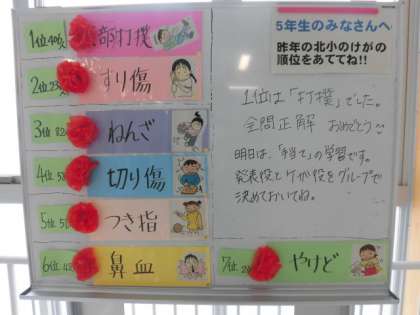 1位
部打撲
2位
すり傷
3位
ねんざ
4位
切り傷
5位
つき指
6位
鼻血
5年生のみなさんへ
昨年の北小のけがの
順位をあててね!!
1位は「打撲」でした。
全問正解 おめでとう
明日は、「手当て」の学習です。
発表役とケガ役をグループで
決めておいてね。
7位
やけど